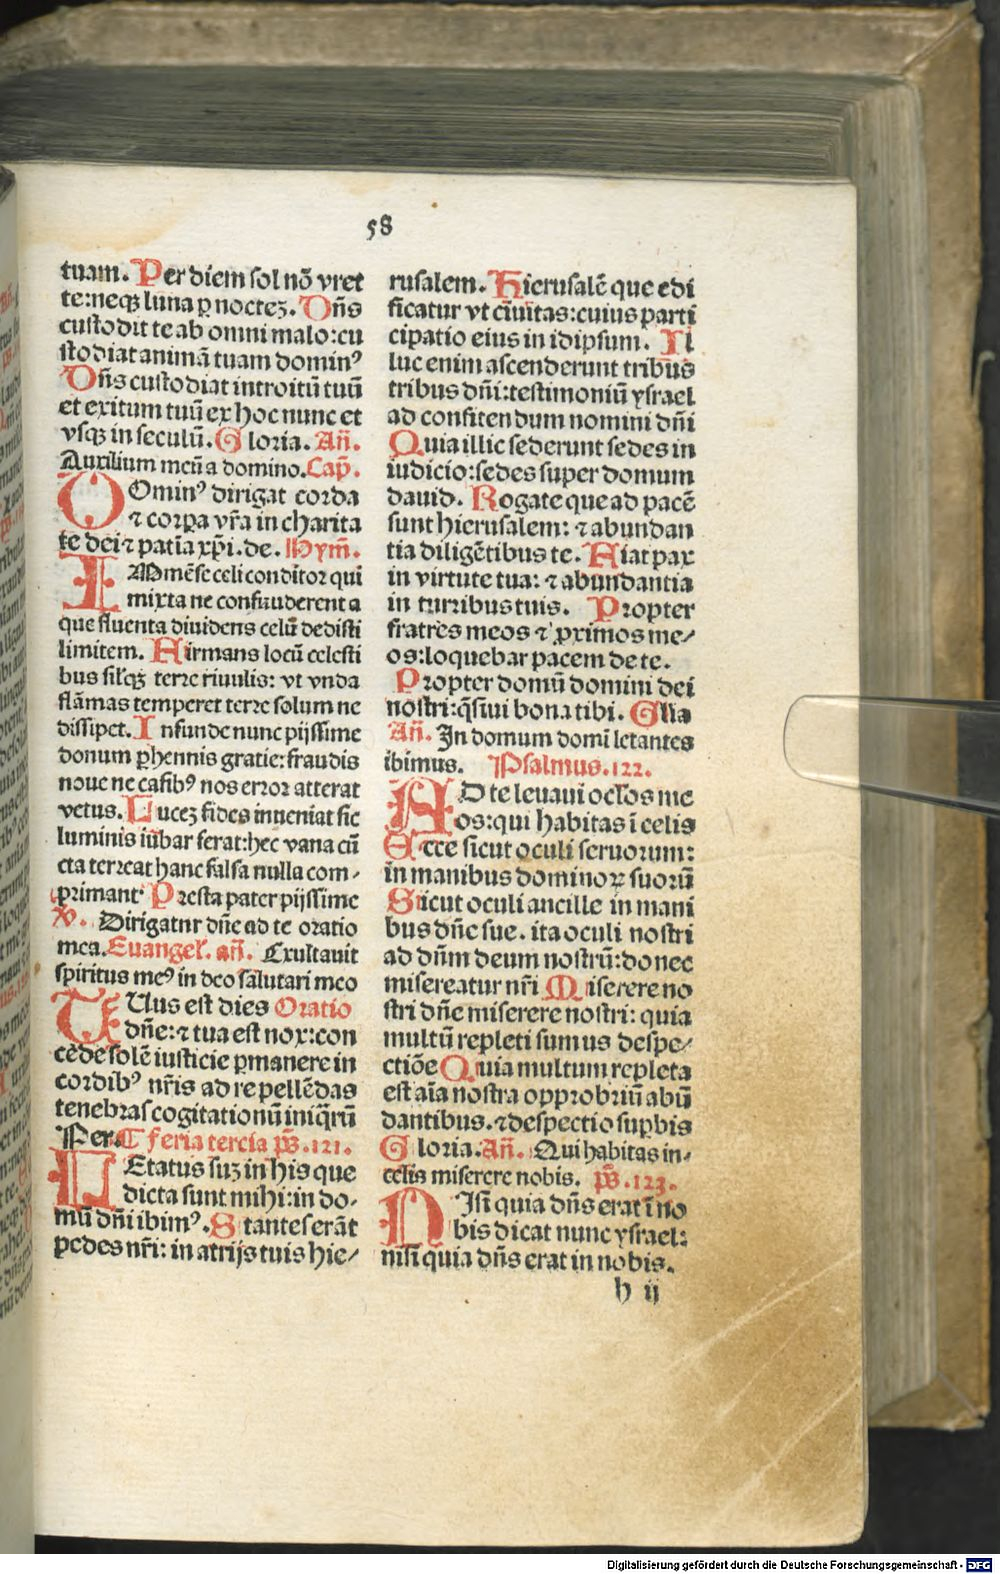 58
tuam. Per diem sol nō vret
te:neqꝫ luna ꝑ nocteꝫ. Dñs
custodit te ab omni malo:cu
stodiat animā tuam dominꝰ
Dñs custodiat introitū tuū
et exitum tuū ex hoc nunc et
vsqꝫ in seculū. Gloria. Añ.
Auxilium meū a domino. Cap̄.
DOminꝰ dirigat corda
⁊ corpa vr̄a in charita
te dei ⁊ patiā xp̄i. de. Hym̄.
IMmēse celi conditor qui
mixta ne confunderent a
que fluenta diuidens celū dedisti
limitem. Firmans locū celesti
bus sil'qꝫ terre riuulis: vt vnda
flāmas temperet terre solum ne
dissipet. Infunde nunc pijssime
donum ꝑhennis gratie: fraudis
noue ne casibꝰ nos error atterat
vetus. Luceꝫ fides inueniat sic
luminis iubar ferat:hec vana cū
cta terreat hanc falsa nulla com-
primant Presta pater pijssime
V. Dirigatur dn̄e ad te oratio
mea. Euangel'. añ. Exultauit
spiritus meꝰ in deo salutari meo
TUus est dies Oratio
dn̄e:⁊ tua est nox:con
cede solē iusticie ꝑmanere in
cordibꝰ nr̄is ad repellēdas
tenebras cogitationū iniq̄rū
Per. ¶ feria tercia ps̄.121.
LEtatus suꝫ in his que
dicta sunt mihi:in do-
mū dn̄i ibimꝰ. Stantes erāt
pedes nr̄i: in atrijs tuis hie/
rusalem. Hierusalē que edi
ficatur vt ciuitas:cuius parti
cipatio eius in idipsum. Il
luc enim ascenderunt tribus
tribus dn̄i:testimoniū ysrael
ad confitendum nomini dn̄i
Quia illic sederunt sedes in
iudicio:sedes super domum
dauid. Rogate que ad pacē
sunt hierusalem: ⁊ abundan
tia diligētibus te. Fiat pax
in virtute tua: ⁊ abundantia
in turribus tuis. Propter
fratres meos ⁊ ꝓximos me/
os:loquebar pacem de te.
Propter domū domini dei
nostri:q̄siui bona tibi. Glīa
Añ. In domum domī letantes
ibimus. Psalmus.122.
AD te leuaui oc'los me
os:qui habitas ī celis
Ecce sicut oculi seruorum:
in manibus dominoꝝ suorū
Sicut oculi ancille in mani
bus dn̄e sue. ita oculi nostri
ad dn̄m deum nostrū:donec
misereatur nr̄i Miserere no
stri dn̄e miserere nostri: quia
multū repleti sumus despe/
ctiōe Quia multum repleta
est aīa nostra opprobriū abū
dantibus. ⁊ despectio suꝑbis
Gloria. Añ. Qui habitas in-
celis miserere nobis. ps̄.123.
NIsi quia dñs erat ī no
bis dicat nunc ysrael:
nisi quia dñs erat in nobis.
h ij
Digitalisierung gefördert durch die Deutsche Forschungsgemeinschaft - DFG